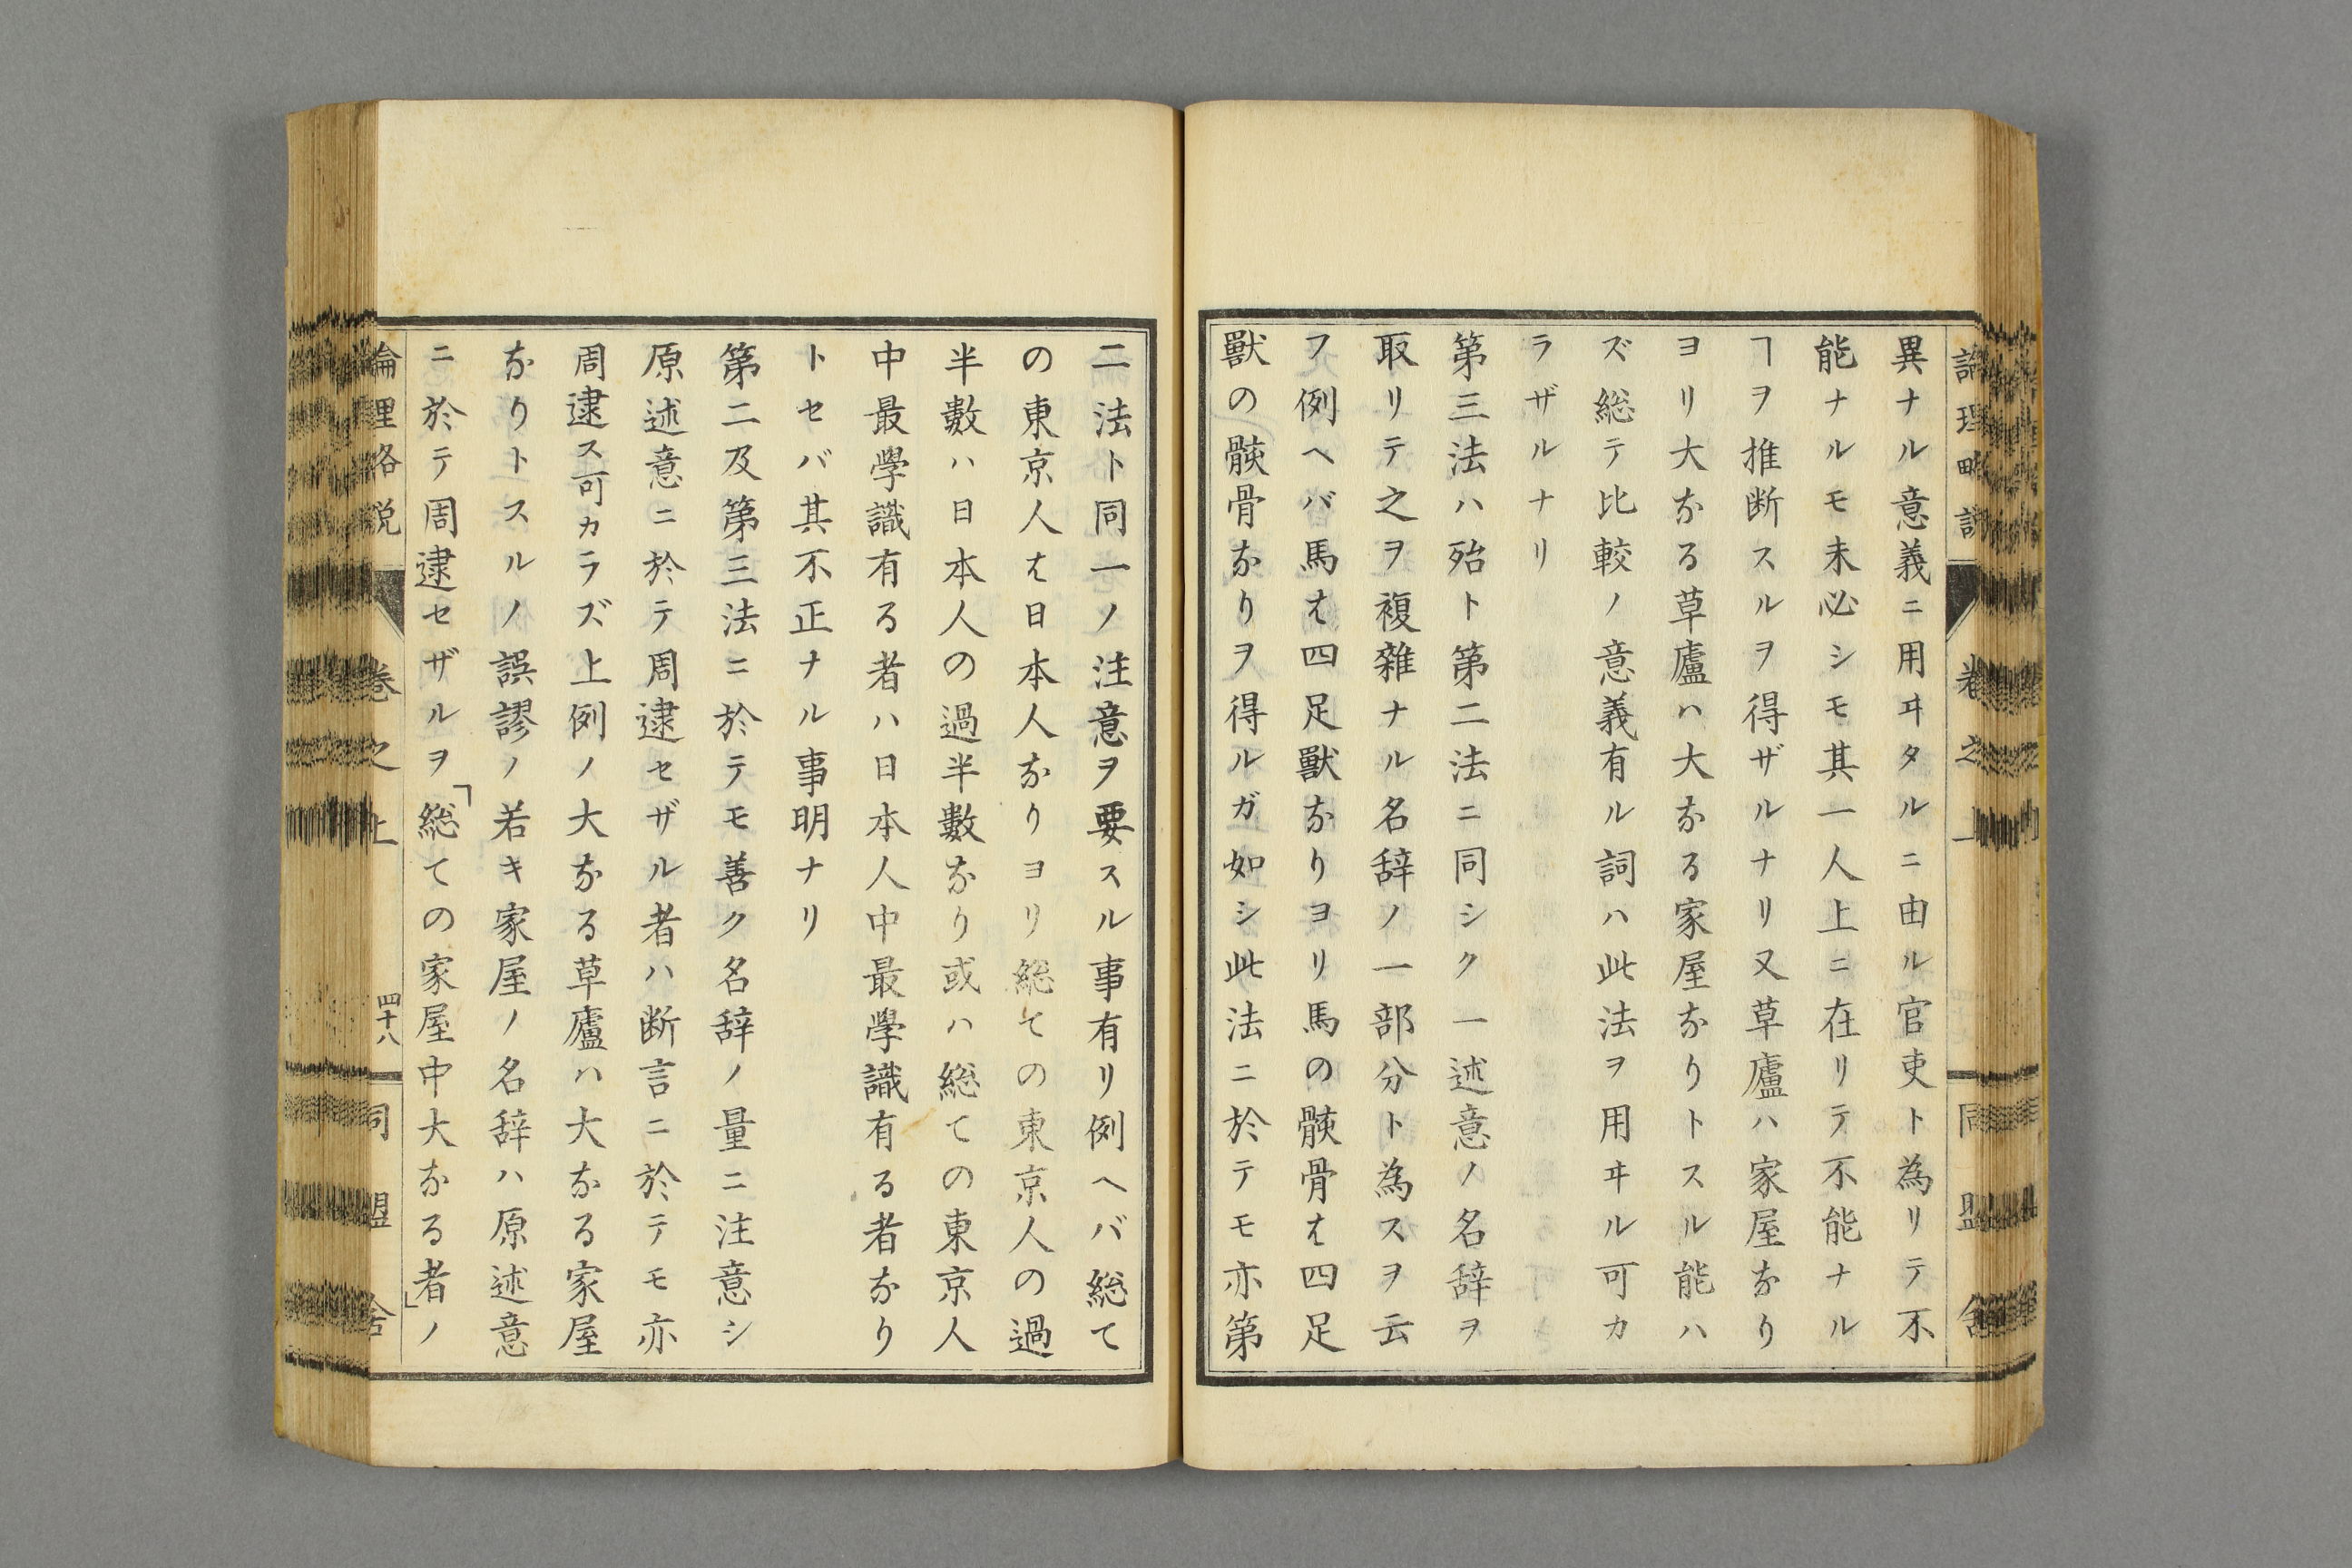 論理略説 卷之上 同盟舎
異ナル意義ニ用ヰタルニ由ル官吏ト為リテ不
能ナルモ未必シモ其一人上ニ在リテ不能ナル
ヿヲ推断スルヲ得ザルナリ又草廬ハ家屋なり
ヨリ大なる草廬ハ大なる家屋なりトスル能ハ
ズ総テ比較ノ意義有ル詞ハ此法ヲ用ヰル可カ
ラザルナリ
第三法ハ殆ト第二法ニ同シク一述意ノ名辞ヲ
取リテ之ヲ複雑ナル名辞ノ一部分ト為スヲ云
フ例ヘバ馬は四足獸なりヨリ馬の骸骨は四足
獸の骸骨なりヲ得ルガ如シ此法ニ於テモ亦第
二法ト同一ノ注意ヲ要スル事有リ例ヘバ総て
の東京人は日本人なりヨリ総ての東京人の過
半數ハ日本人の過半數なり或ハ総ての東京人
中最學識有る者ハ日本人中最學識有る者なり
トセバ其不正ナル事明ナリ
第二及第三法ニ於テモ善ク名辞ノ量ニ注意シ
原述意ニ於テ周逮セザル者ハ断言ニ於テモ亦
周逮ス可カラズ上例ノ大なる草廬ハ大なる家屋
なりトスルノ誤謬ノ若キ家屋ノ名辞ハ原述意
ニ於テ周逮セザルヲ「総ての家屋中大なる者」ノ
論理略説 卷之上 四十八 同盟舎